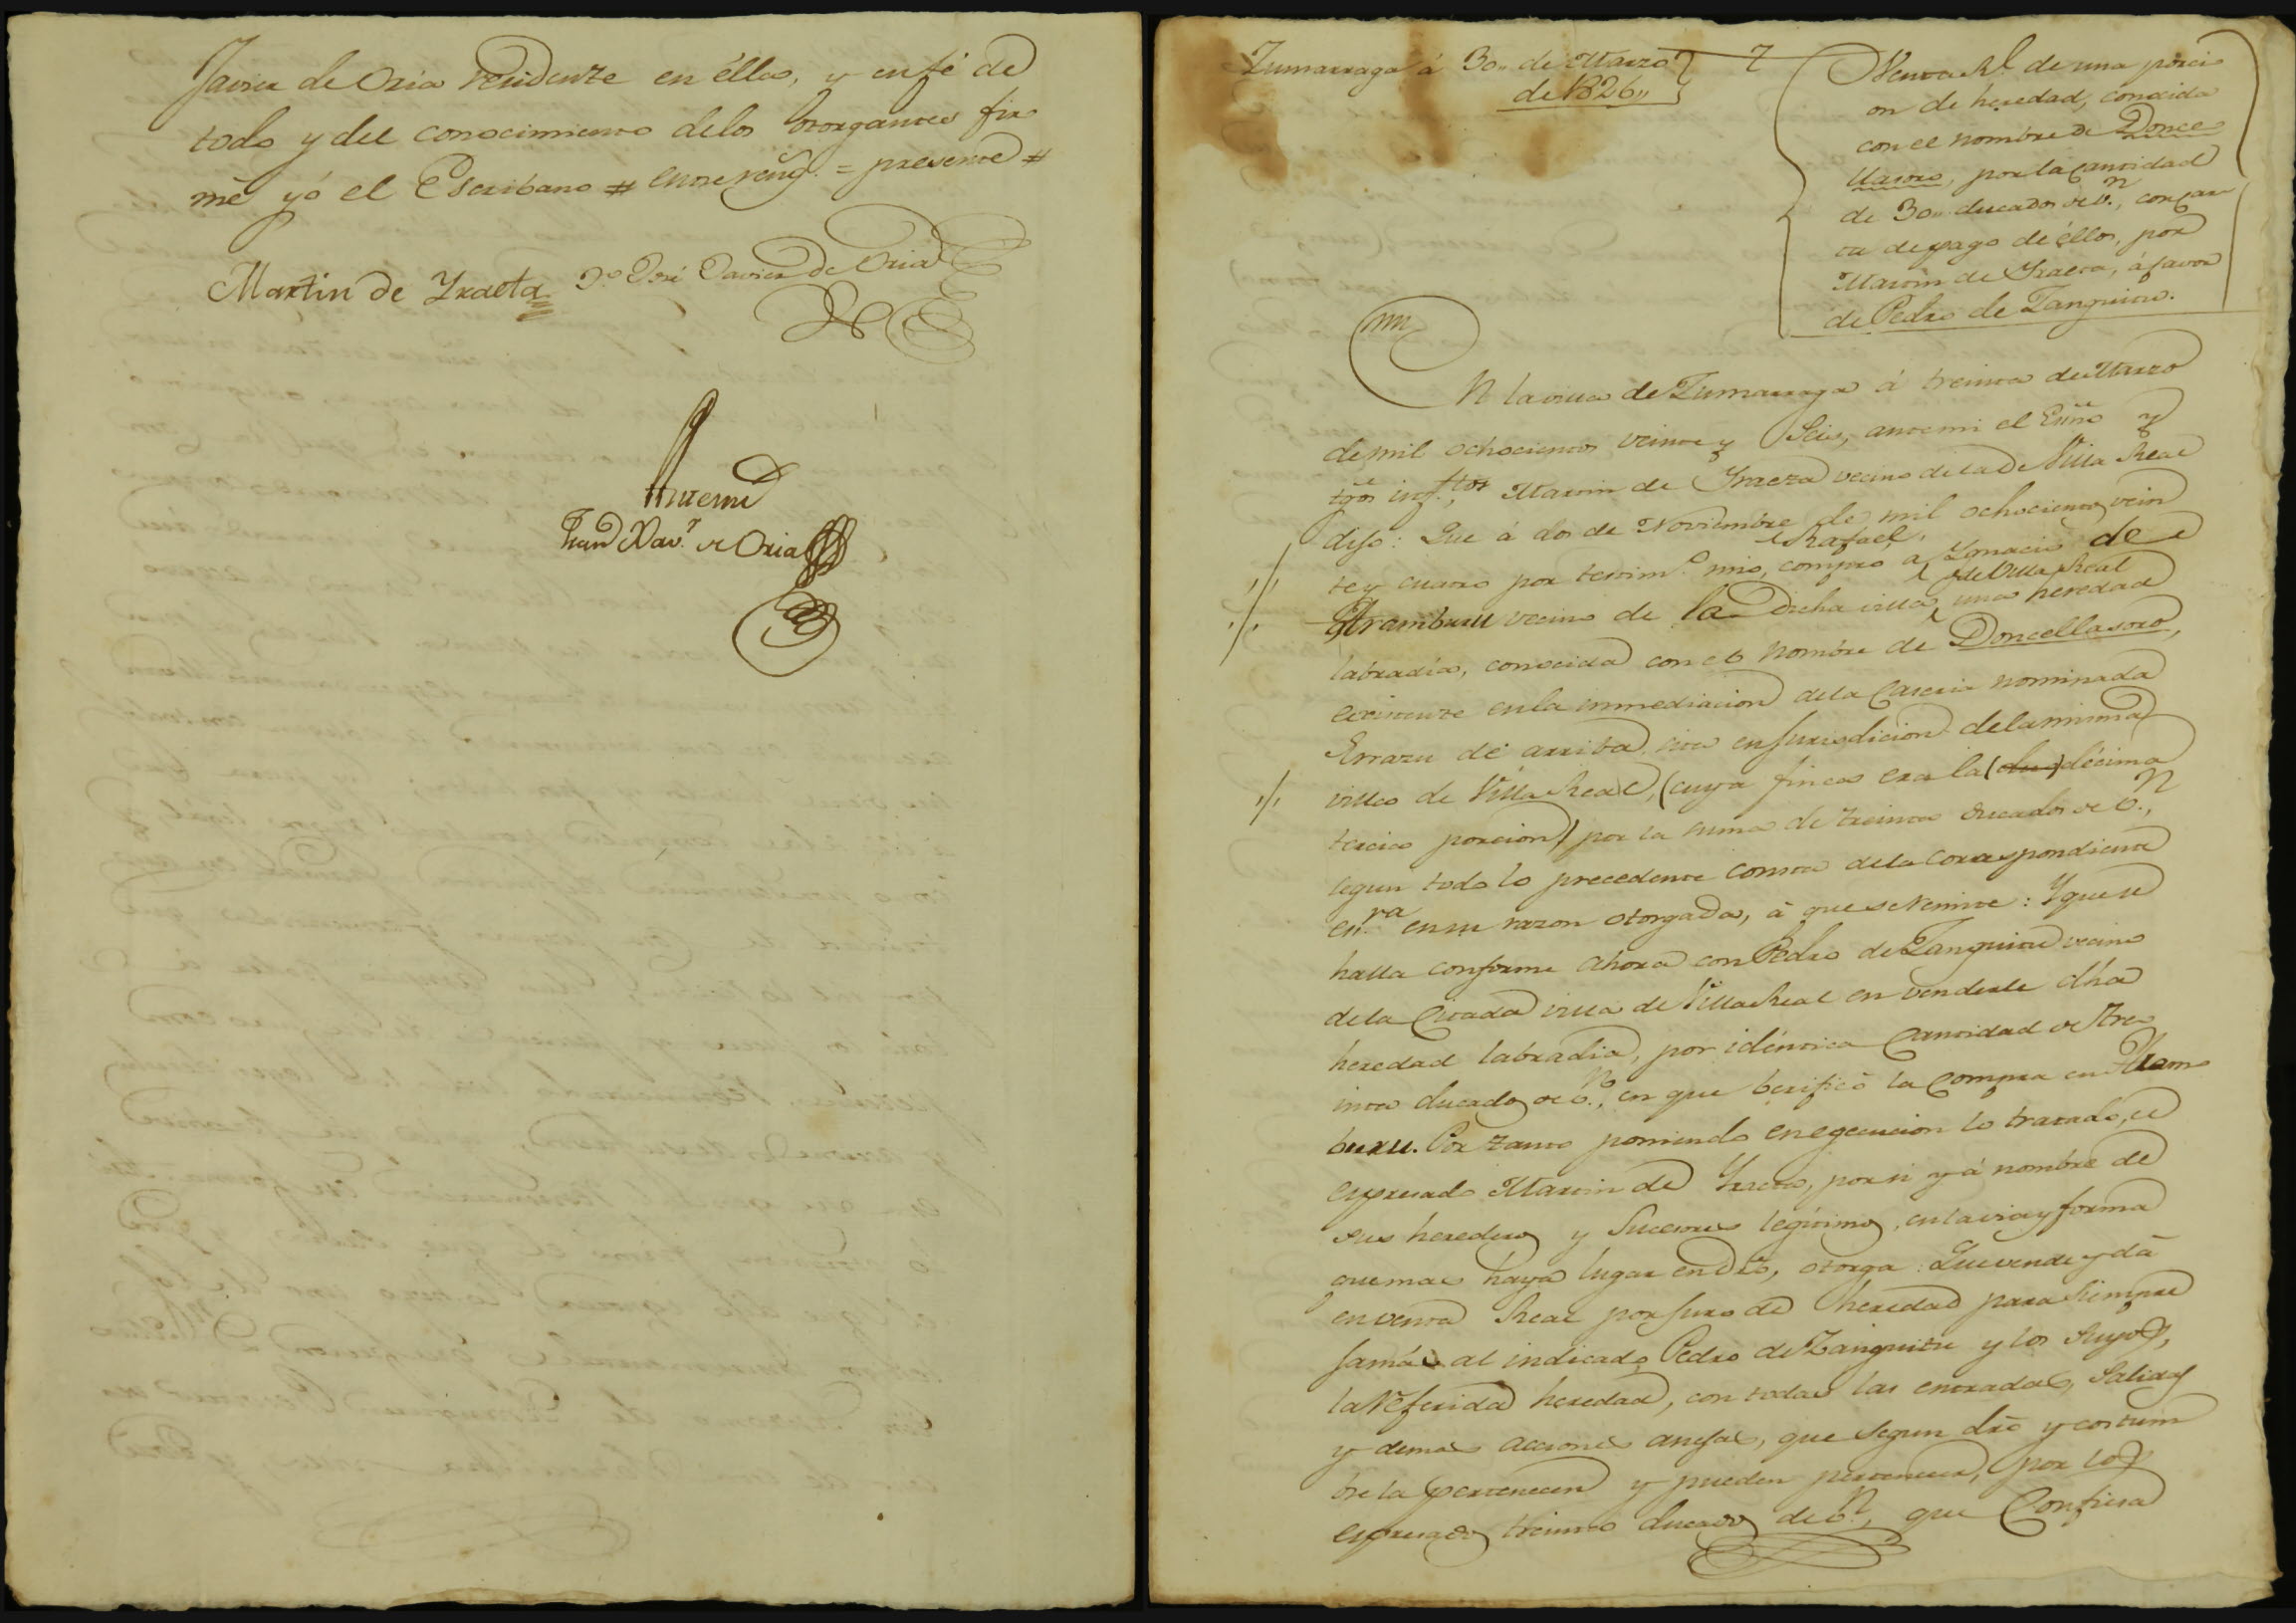 Javier de Oria residente en éllas, y en fé de
todo y del conocimiento delos Otorgantes fir
mé yó el Escribano # entre reng.ˢ = presente #
Martin de Yraeta
Tº José Javier de Oria
Ante mi
Juan Xav.ʳ de Oria
Zumarraga á 30,, de Marzo
de 1826,,
7
Venta Rˡ. de una porci
on de heredad, conocida
con el nombre de Donce
llasoro, por la Cantidad
de 30,, ducados de v.ⁿ, con car
ta de pago de éllos, por
Martin de Yraeta, á favor
de Pedro de Zanguitu.
En la villa de Zumarraga á treinta de Marzo
de mil ochocientos veinte y Seis, ante mi el Essño y
tgõs inf.ᵗᵒˢ, Martin de Yraeta vecino de la de Villa Real
dijo: Que á dos de Noviembre de mil ochocientos vein
te y cuatro por testim.º mio, compro a Rafael Ygnacio de
Aramburu vecino de la Dicha villa de Villa Real una heredad
labradía, conocida con el nombre de Doncellasoro,
existente en la inmediacion de la Caseria nominada
Errazu de arriba sita en Jurisdicion de la misma
villa de Villa Real, (cuya finca era la (due) décima
tercia porcion) por la suma de treinta ducados de v.ⁿ,
segun todo lo precedente consta de la Correspondiente
en.ʳᵃ en su razon otorgada, á que se remite: Y que se
halla conforme ahora con Pedro de Zanguitu vecino
de la Citada villa de Villa Real en venderle dha
heredad labradia, por idéntica Cantidad de tre
inta ducados de v.ⁿ, en que berificó la Compra en Aram
buru. Por tanto poniendo en egecucion lo tratado, el
espresado Martin de Yraeta, por si y á nombre de
sus herederos y Sucesores legítimos, en la via y forma
que mas haya lugar en drõ, otorga: Que vende y dá
en venta Real por juro de heredad para Siempre
jamás al indicado Pedro de Zanguitu y los Suyos,
la referida heredad, con todas las entradas, Salidas
y demas acciones anejas, que segun drõ y costum
bre la pertenecen y pueden pertenecer, por los
espresados treinta ducados de v.ⁿ, que Confiesa